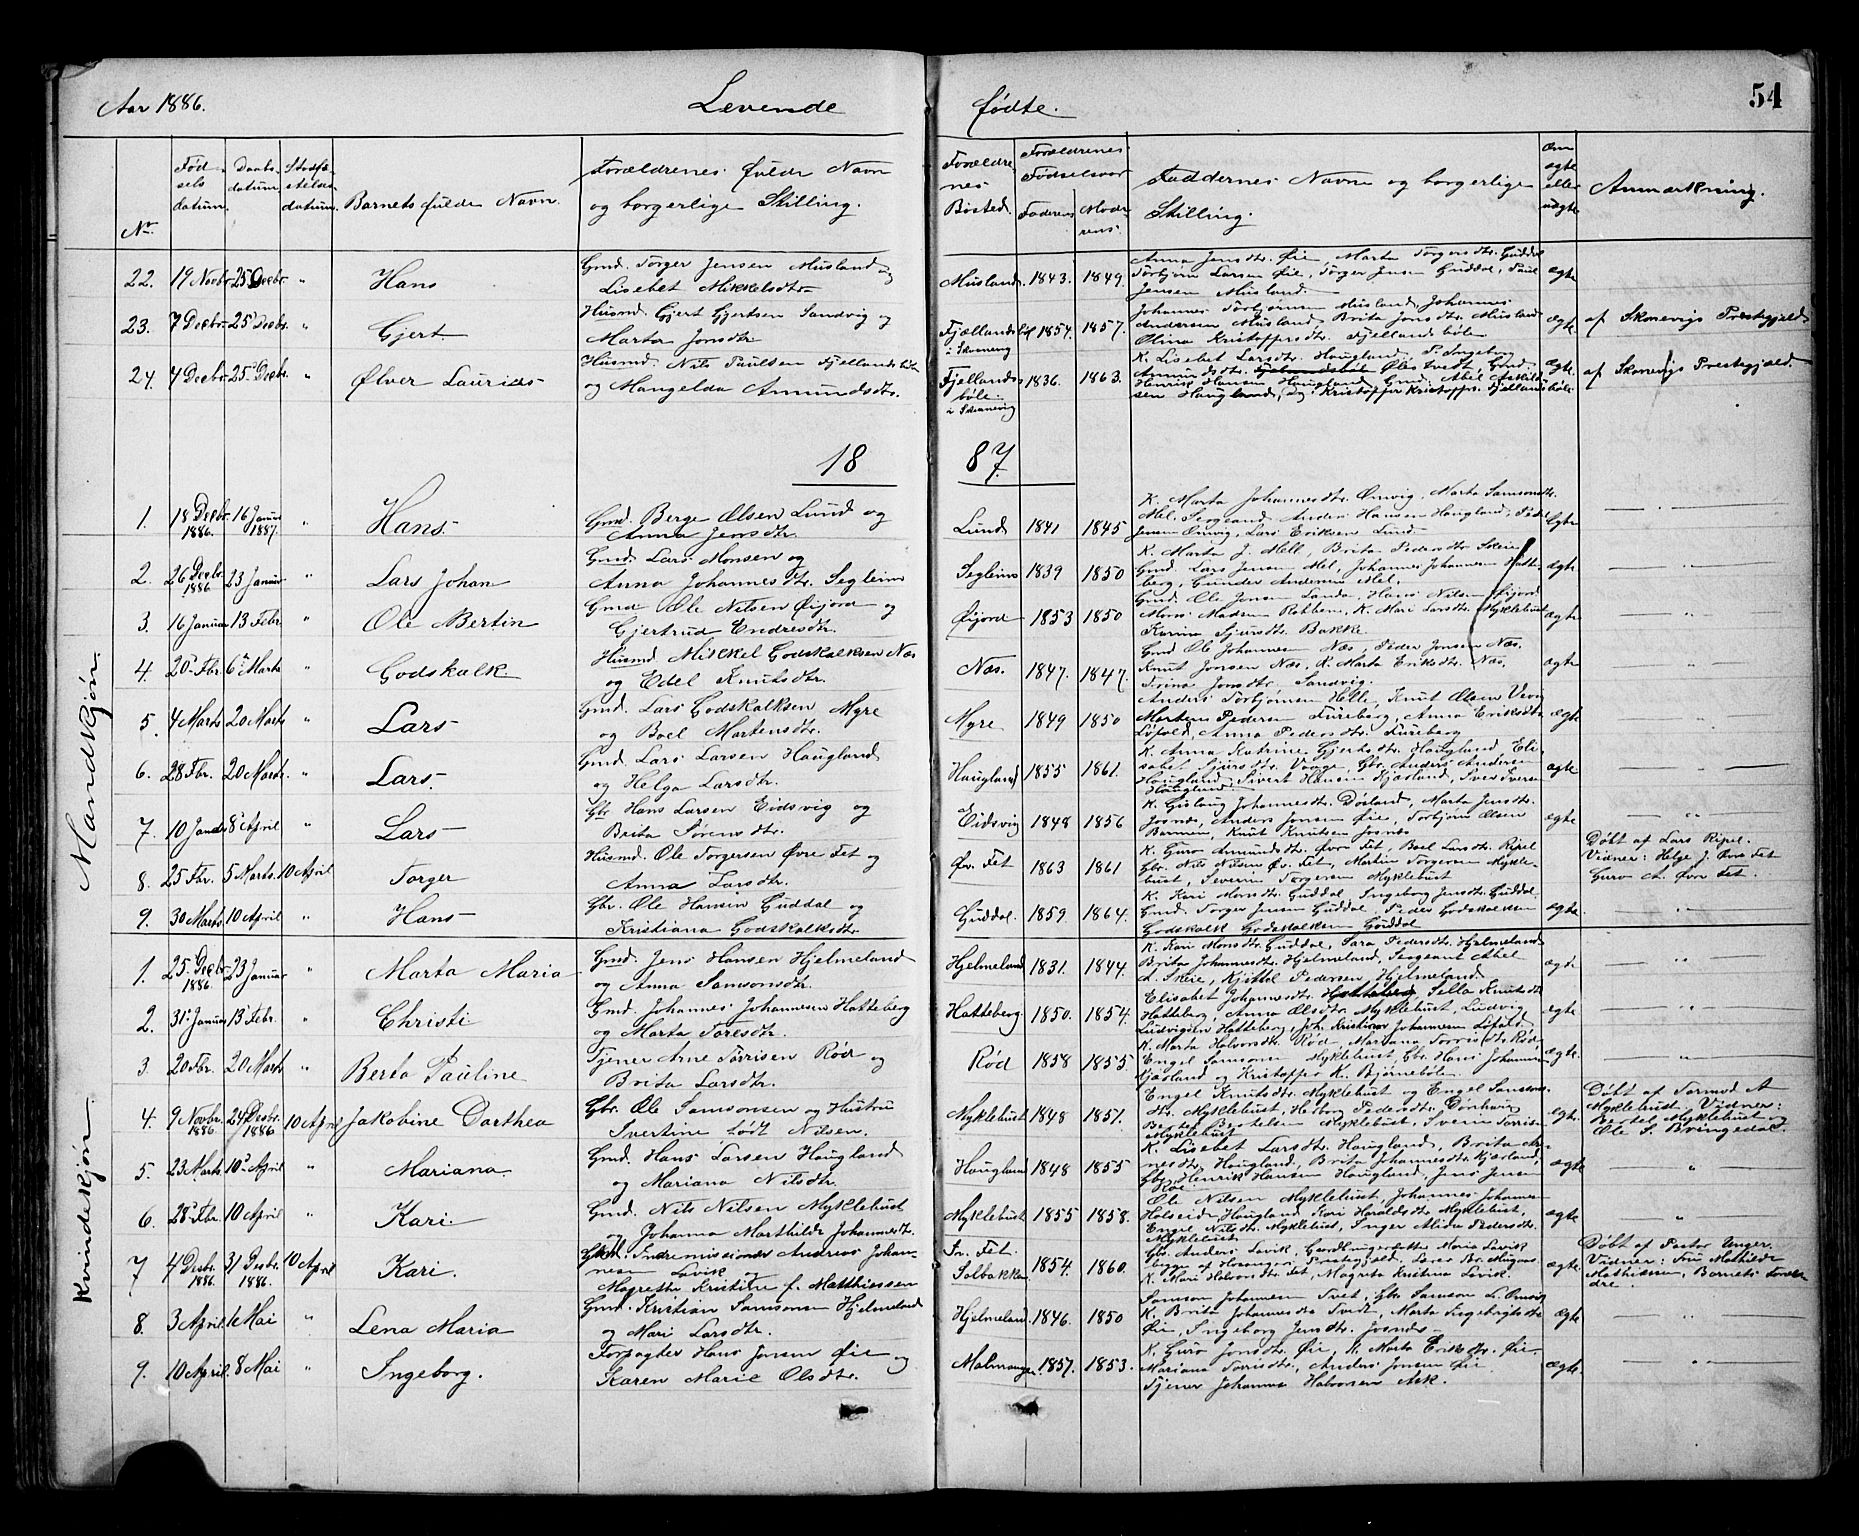 Aar 1886.
Levende fødte.
54
No.
Fødselsdatum.
Daabsdatum.
Stadfæstelsesdatum.
Barnets fulde Navn.
Forældrenes fulde Navn og borgerlige Stilling.
Forældrenes Bosted.
Forældrenes Fødselsaar
Faderens
Moderens
Faddernes Navne og borgerlige Stilling.
Om ægte eller uægte
Anmærkning.
22. 19 Novbr. 25 Decbr. " Hans
Gmd. Torger Jensen Musland og
Lisebet Mikkelsdtr.
Musland. 1843. 1849.
Anna Jensdtr. Øie, Marta Torgersdtr. Guddal
Torbjørn Larsen Øie, Torger Jensen Guddal, Paul
Jensen Musland.
ægte
23. 7 Decbr. 25 Decbr. " Gjert.
Husmd. Gjert Gjertsen Sandvig og
Marta Jonsdtr.
Fjællandsbøl
i Skonevig
1854. 1857.
Johannes Torbjørnsen Musland, Johannes
Andersen Musland, Brita Jonsdtr. Musland
Olina Kristoffersdtr. Fjellandsbøle
ægte. af Skonevigs Prestegjeld.
24. 4 Decbr. 25 Decbr. " Ølver Laurits
Husmd. Nils Paulsen Fjellandsbøle
og Mangelda Amundsdtr.
Fjellandsbøle
i Skonevig
1836. 1863.
K. Lisebet Larsdtr. Haugland, P. Ingeborg
Amundsdtr. Øles Tvedt, Gmd.
Henrik Hansen Haugland, Gmd. Abel Askildsen
Haugland, Kristoffer Kristoffers. Fjellandsbøle.
ægte. af Skonevigs Prestegjeld.
1887.
Mandkjøn.
1. 18 Decbr. 1886. 16 Januar 1887. " Hans.
Gmd. Berge Olsen Lund og
Anna Jensdtr.
Lund 1841 1845
K. Marta Johannesdtr. Ømvig, Marta Samsonsdtr.
Mel, Sergeant Anders Hansen Haugland, Peder
Jensen Ømvig, Lars Eriksen Lund.
ægte
2. 26 Decbr. 1886 23 Januar " Lars Johan
Gmd. Lars Monsen og
Anna Johannesdtr. Segleims
Segleims 1839 1850
K. Marta J. Mell, Brita Pedersdtr. Skeie
Gmd. Lars Jensen Mel, Johannes Johannesen Hatteberg,
Gunder Andersen Mel.
ægte
3. 16 Januar 13 Febr. " Ole Bertin
Gmd Ole Nilsen Øijord og
Gjertrud Endresdtr.
Øijord 1853 1850
Gmd. Ole Jensen Landa, Hans Nilsen Øijord
Mons Madsen Rabben, K. Mari Larsdtr. Myklebust
Karina Sjursdtr. Bakke
ægte
4. 20 Fbr. 6 Marts " Godskalk.
Husmd Mikkel Godskalksen Næs
og Edel Knutsdtr.
Næs. 1847. 1847.
Gmd Ole Johannesen Næs, Peder Jonsen Næs.
Knut Jonsen Næs, K. Marta Eriksdtr. Næs,
Trina Jonsdtr. Sandvig.
ægte
5. 4 Marts 20 Marts " Lars
Gmd. Lars Godskalksen Myre
og Boel Martensdtr.
Myre 1849 1850
Anders Torbjørnsen Helle, Knut Olsen Vaag
Martens Pedersen Fureberg, Anna Eriksdtr.
Løfald, Anna Pedersdtr. Fureberg
ægte
6. 28 Fbr. 20 Marts. " Lars.
Gmd. Lars Larsen Haugland
og Helga Larsdtr.
Haugland 1855 1861.
K. Anna Katrine Gjertsdtr. Haugland, Elisabet
Sjursdtr. Vaage, Gbr. Anders Andersen
Haugland, Sivert Hansen Kjæsland, Sven Svensen
Haugland.
ægte
7. 10 Januar 8 April " Lars
Gbr Hans Larsen Eidsvig og
Brita Sørensdtr.
Eidsvig 1848 1856
K. Gislaug Johannesdtr. Døsland, Marta Jensdtr.
Josnes, Anders Jonsen Øie, Torbjørn Olsen
Bormen, Knut Knutsen Josnes
ægte
8. 25 Fbr. 5 Marts. 10 April Torger
Husmd. Ole Torgersen Øvre Fet og
Anna Larsdtr.
Øv. Fet 1863 1861
K. Guro Amundsdtr. Øvre Fet, Boel Larsdtr. Ripel
Gbr. Nils Nilsen Øv. Fet, Martin Torgersen Myklebust,
Severin Torgersen Myklebust
ægte
Døbt af Lars Ripel.
Vidner: Helge J. Øvre Fet
Guro A. Øvre Fet.
9. 30 Marts 10 April " Hans
Gbr. Ole Hansen Guddal og
Kristiana Godskalksdtr.
Guddal. 1859. 1864.
K. Kari Monsdtr. Guddal, Ingeborg Jensdtr. Guddal
Gmd. Torger Jensen Guddal, Peder Godskalksen
Godskalk Godskalksen Guddal
ægte
Kvindekjøn.
1. 25 Decbr. 1886. 23 Januar " Marta Maria
Gmd. Jens Hansen Hjelmeland
og Anna Samsonsdtr.
Hjelmeland 1831. 1844.
K. Kari Monsdtr. Guddal, Sara Pedersdtr. Hjelmeland
Brita Johannesdtr. Hjelmeland, Sergeant Abel
A. Skeie, Kjittel Pedersen Hjelmeland.
ægte
2. 31 Januar 13 Febr. " Christi
Gmd. Johannes Johannesen Hatteberg
og Marta Toresdtr.
Hatteberg 1850. 1854.
Elisabet Johannesdtr. Hatteberg, Sella Knutsdtr
Hatteberg, Anna Olsdtr. Myklebust, Ludvig
Ludvigsen Hatteberg, Joh. Kristian Johannesen Løfald.
ægte
3. 20 Fbr. 20 Marts " Berta Pauline
Tjener Arne Torrisen Rød og
Brita Larsdtr.
Rød 1858 1855.
K. Marta Halvorsdtr. Rød, Mariana Torrisdtr. Rød
Engel Samsonsen Myklebust, Gbr. Hans Johannesen
Kjæsland og Kristoffer K. Bjørnebøle.
ægte.
4. 9 Novbr. 1886 24 Desbr. 1886 10 April Jakobine Dorthea
Gbr. Ole Samsonsen og Hustru
Ivertine født Nilsen.
Myklebust 1848 1851.
Engel Knutsdtr. Myklebust og Engel Samsonsdtr.
Myklebust, Herborg Pedersdtr. Dønhaug
Bertel Bertelsen Myklebust, Svein Torrisen
Myklebust.
ægte.
Døbt af Tormod A
Myklebust. Vidner:
Bertel Myklebust og
Ole S. Bringedal.
5. 23 Marts 10 April " Mariana.
Gmd. Hans Larsen Haugland
og Mariana Nilsdtr.
Haugland 1848 1855
K. Lisebet Larsdtr. Haugland, Brita Arnesdtr.
Haugland, Brita Johannesdtr. Kjæsland,
Gbr. Henrik Hansen Haugland, Jens Jensen
Røe
ægte
6. 28 Fbr. 10 April " Kari.
Gmd. Nils Nilsen Myklebust
og Johanna Marthilde Johannesdtr.
Myklebust 1855 1858.
Ole Nilsen Myklebust, Johannes Johannesen
Halseide, Haugland, Kari Haraldsdtr. Myklebust,
Engel Nilsdtr. Myklebust, Inger Alida Pedersdtr.
Myklebust.
ægte
7 4 Desbr. 1886. 31 Desbr. 1886. 10 April Kari.
Indremissionær Andreas Johannesen
Lavik og
Magrethe Kristine f. Matthiessen
Fet.
Solbakken
1854. 1860.
Gbr. Anders Lavik, Maria Lavik
K. Mari Halvorsdtr. Fet, Magreta Kristina Lavik.
ægte
Døbt af Pastor Unger.
Vidner: Fru Mathilde
Mathiesen, Barnets Forældre.
8. 3 April 1 Mai " Lena Maria
Gmd. Kristian Samsonsen Hjelmeland
og Mari Larsdtr.
Hjelmeland 1846. 1850
Samson Johannesen Tvet, Gbr Samson L. Ømvig
K. Brita Johannesdtr Tvedt, Marta Ingebrigtsdtr
Øie, Ingeborg Jensdtr. Josnes
ægte
9. 10 April 8 Mai " Ingeborg.
Forpagter Hans Jonsen Øie og
Karen Marie Olsdtr.
Malmanger. 1857. 1853.
K. Guro Jonsdtr. Øie, K. Marta Eriksdtr. Øie
Mariana Torrisdtr., Anders Jonsen Øie
Tjener Johannes Halvorsen Ask.
ægte.